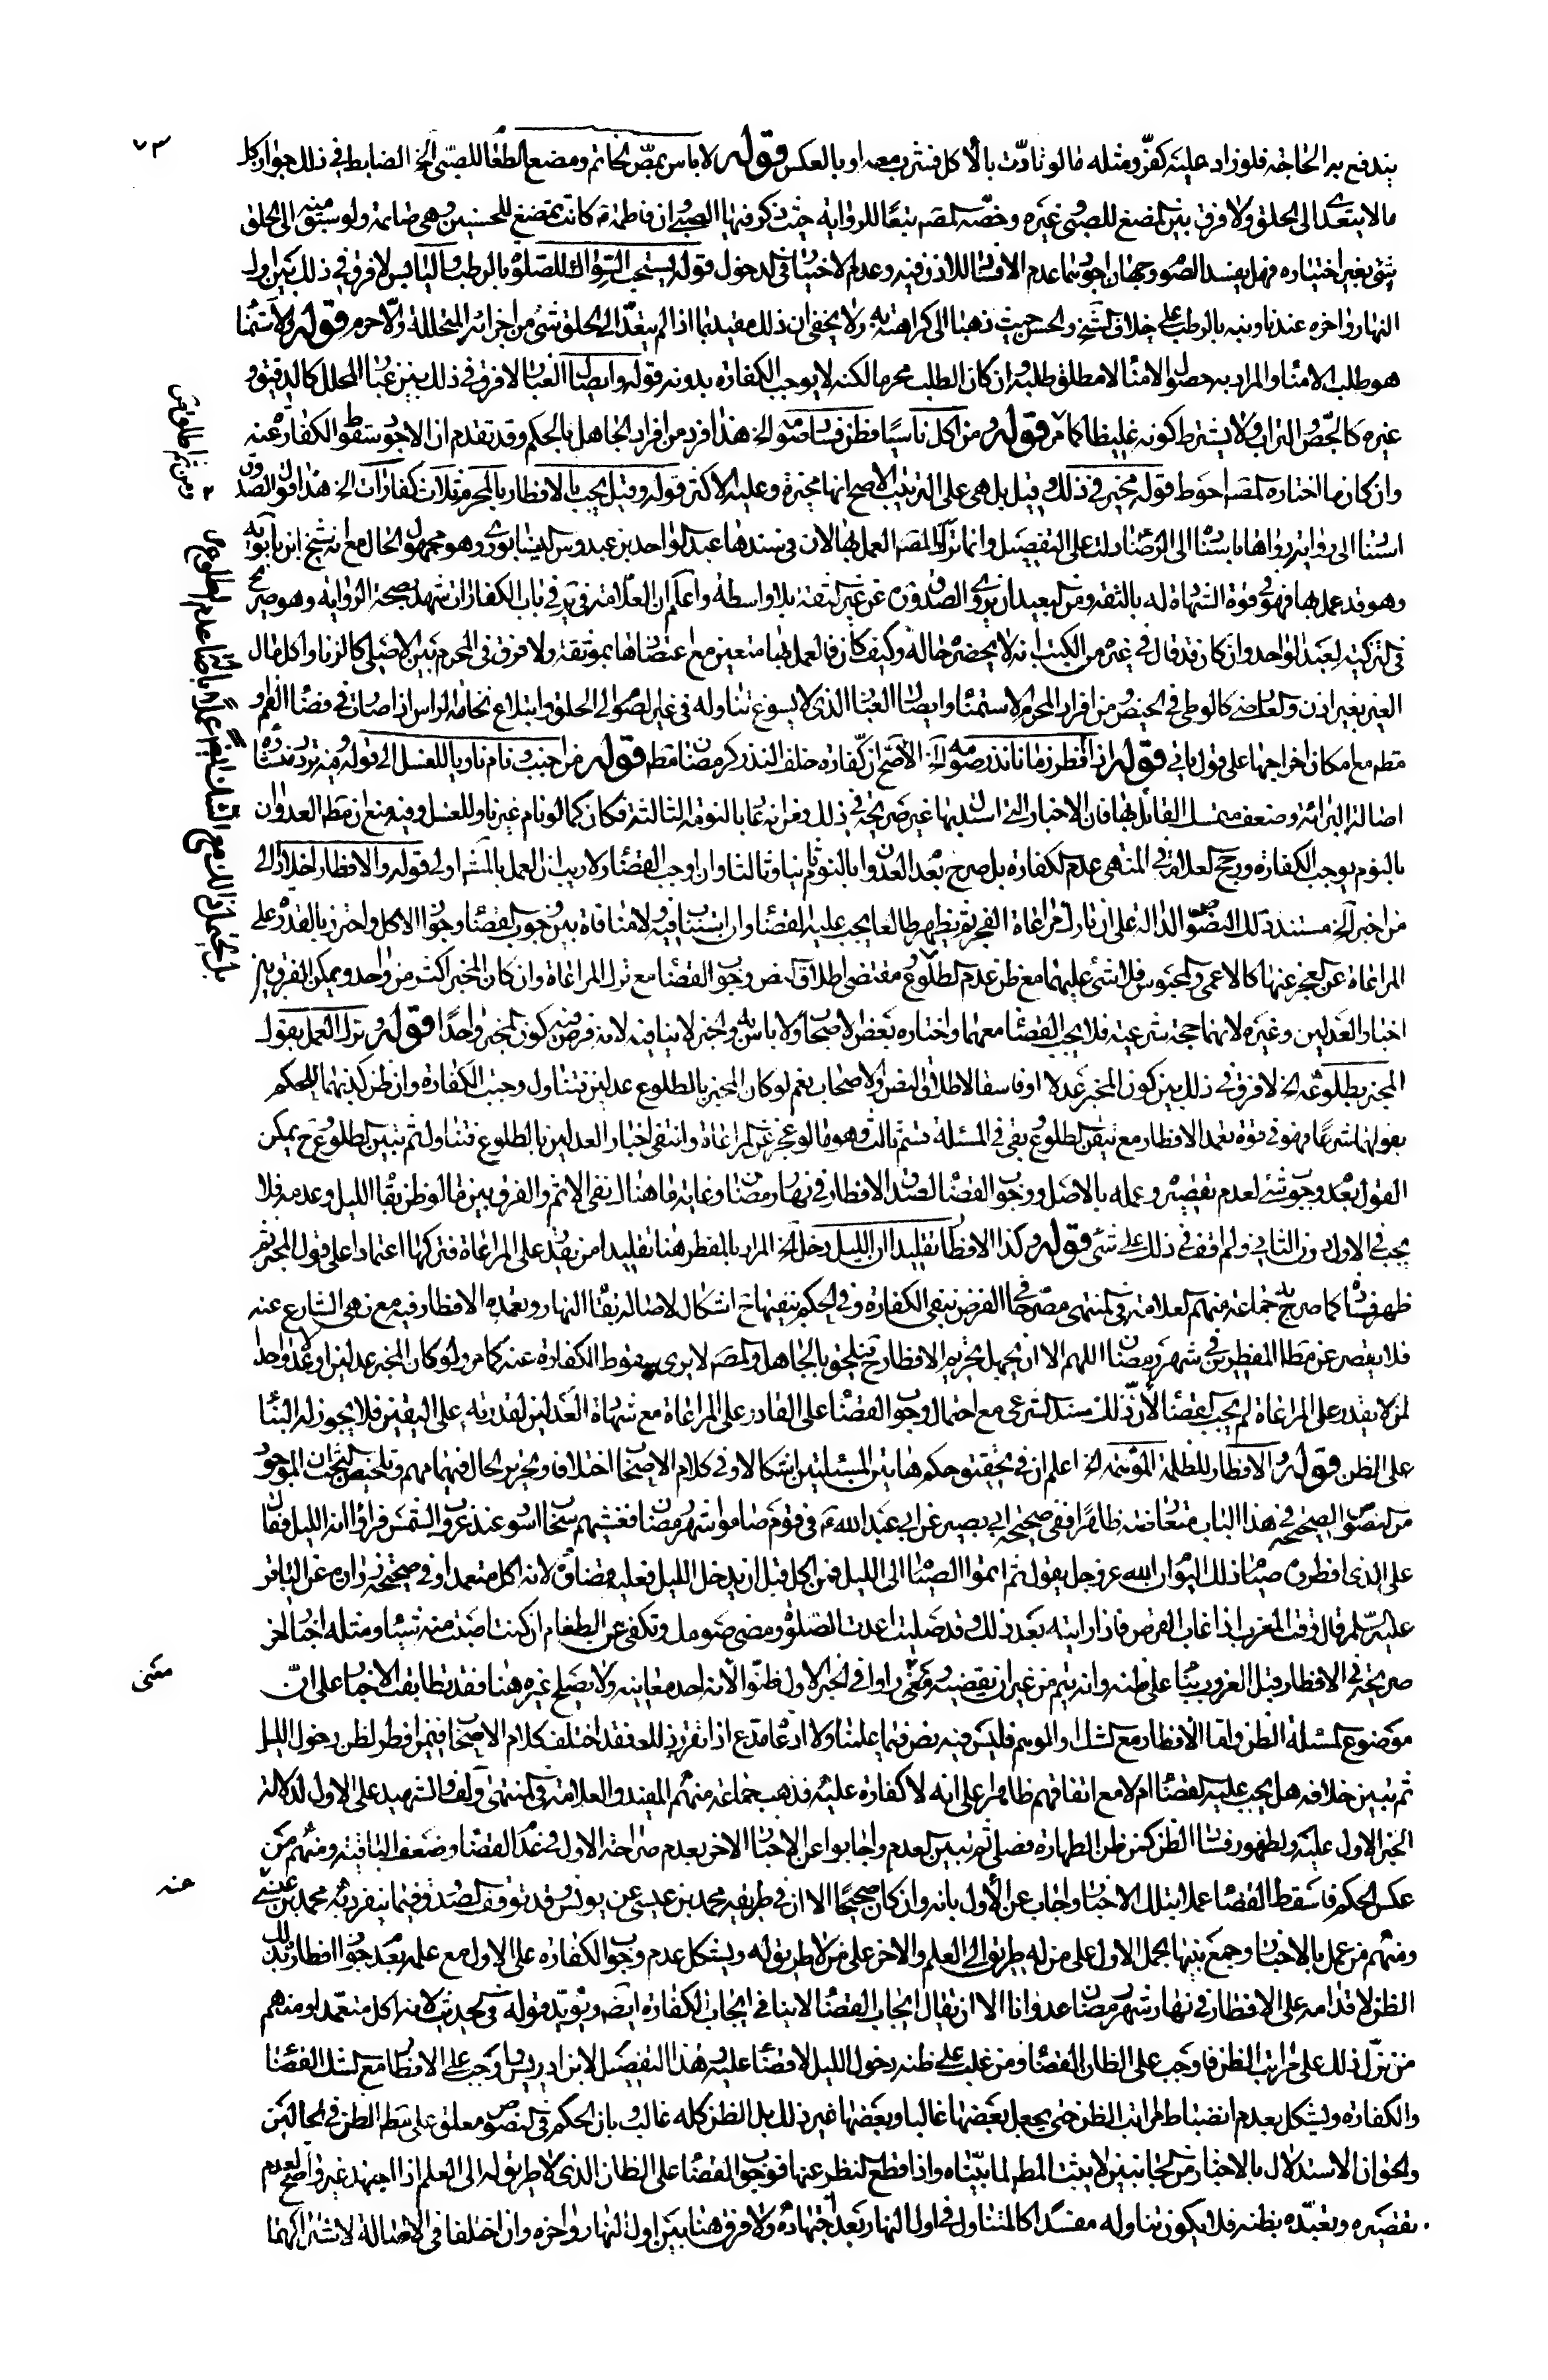 ٧٣
يندفع به الحاجة فلو زاد عليه كفّر ومثله ما لو تأدّت بالأكل فشرب معه او بالعكس قوله لا باس بمصّ الخاتم ومضع الطعا للصّبى الخ الضابط في ذلك جواز كل
ما لا يتعدى الى الحلق ولا فرق بين المضغ للصبى وغيره وخصّه المصَ تبعًا للرواية حيث ذكر فيها الصبى ان فاطمة ع كانت تمضغ للحسنين وهى صايمة ولو سبق منه الى الحلق
شئ بغير اختياره فهل يفسد الصوم وجهان اجودهما عدم الافساد للاذن فيه وعدم الاختيار في الدخول قوله يستحب السواك للصلوة بالرطب واليابس لا فرق في ذلك بين اول
النهار واخره عندنا ونبه بالرطب على خلاف الشيخ والحسن حيث ذهبا الى كراهته به ولا يخفى ان ذلك مقيد بما اذا لم يتعدّ الى الحلق شئ من اجزائه المتحللة والّا حرم قوله والاستمنا
هو طلب الامنا والمراد به حصول الامنا لا مطلق طلبه وان كان الطلب محرما لكنه لا يوجب الكفارة بدونه قوله وايصال الغبار لا فرق في ذلك بين غبار المحلل كالدقيق و
غيره كالجصّ والتراب ولا يشترط كونه غليظا كما مرّ قوله ومن اكل ناسيًا فظن فساد صومه الخ هذا فرد من افراد الجاهل بالحكم وقد تقدم ان الاجود سقوط الكفارة عنه
وان كان ما اختاره المصَ احوط قوله مخير في ذلك وقيل بل هى على الترتيب الاصح انها مخيرة وعليه الاكثر قوله وقيل يجب بالافطار بالمحرم ثلاث كفارات الخ هذا قول الصدوق
استنادا الى رواية رواها باسناده الى الرضا دلت على التفصيل وانما ترك المصَ العمل بها لان في سندها عبد الواحد بن عبدوس النيشابورى وهو مجهول الحال مع انه شيخ ابن بابويه
وهو قد عمل بها فهو في قوة الشهادة له بالثقة ومن البعيد ان يروى الصدوق عن غير الثقة بلا واسطة واعلم ان العلامة في ير في باب الكفارات شهد بصحة الرواية وهو صريح
في تزكية لعبد الواحد وان كان قد قال في غيره من الكتب انه لا يحضره حاله وكيف كان فالعمل بها متعين مع اعتضادها بموثقة ولا فرق في المحرم بين الاصلى كالزنا واكل مال
الغير بغير اذن والعارضى كالوطى في الحيض ومن افراد المحرم الاستمنا وايصال الغبار الذى لا يسوغ تناوله في غير الصوم الى الحلق وابتلاع نخامة الراس اذا صارت في فضا الفم و
مطه مع امكان اخراجها على قول ياتى قوله اذا افطر زمانا نذر صومه الخ الاصح ان كفارة خلف النذر كرمضان مطه قوله من اجنب ونام ناويا للغسل الى قوله فيه تردد منشاؤه
اصالة البرائة وضعف متمسك القائل بها فان الاخبار التى استدل بها غير صريحة في ذلك ومن انه عماد بالنومة الثالثة فكان كما لو نام غير ناو للغسل وفيه منع ان مطه العدوان
بالنوم يوجب الكفارة ورجح العلامة في المنتهى عدم الكفارة بل صرح بعد العدوان بالنوم ثانيا وثالثا وان اوجب القضا ولا ريب ان العمل بالمشه اولى قوله والافطار اخلادا الى
من اخبر الخ مستند ذلك النصوص الدالة على ان تارك مراعاة الفجر يظهر طالعا يجب عليه القضا وان استناب فيه لا منافاة بين وجوب القضا وجواز الاكل واحترز بالقدرة على
المراعاة عن العجز عنها كالاعمى والمحبوس فلا شئ عليهما مع ظن عدم الطلوع ومقتضى اطلاق النص وجوب القضا مع ترك المراعاة وان كان المخبر اكثر من واحد ويمكن الفرق بين
اخبار العدلين وغيره لانهما حجة شرعية فلا يجب القضا معهما واختاره بعض الاصحاب ولا باس به والخبر لا ينافيه لانه فرض فيه كون المخبر واحدًا قوله وترك العمل بقول
المخبر بطلوعه الخ لا فرق في ذلك بين كون المخبر عدلا او فاسقا لاطلاق النص والاصحاب نعم لو كان المخبر بالطلوع عدلين فتناول وجبت الكفارة وان ظن كذبهما للحكم
بقولهما شرعًا فهو في قوة تعمد الافطار مع تيقن الطلوع بقى في المسئلة قسم ثالث وهو ما لو عجز عن المراعاة وانتفى اخبار العدلين بالطلوع فتناول ثم تبين الطلوع ح يمكن
القول بعدم وجوب شئ لعدم تقصيره وعمله بالاصل ووجوب القضا لصدق الافطار في نهار رمضان وغاية ما هناك نفى الاثم والفرق بين ما لو ظن بقا الليل وعدمه فلا
يجب في الاول دون الثانى ولم اقف في ذلك على شئ قوله وكذا الافطار تقليدا ان الليل دخل الخ المراد بالمفطر هنا تقليدا من يقدر على المراعاة فتركها اعتمادا على قول المخبر ثم
ظهر فساده كما صرح به جماعة منهم العلامة في المنتهى مصرحا في الفرض بنفى الكفارة وفى الحكم بنفيها ح اشكال لاصالة بقا النهار وتعمده الافطار فيه مع نهى الشارع عنه
فلا يقصر عن مطه المفطرين في شهر رمضان اللهم الا ان يجهل تحريم الافطار ح فيلحق بالجاهل والمصَ لا يرى سقوط الكفارة عنه كما مر ولو كان المخبر عدلين او عدلا واحدا
لمن لا يقدر على المراعاة لم يجب القضا لأنّ ذلك مستند شرعى مع احتمال وجوب القضا على القادر على المراعاة مع شهادة العدلين لقدرته على اليقين فلا يجوز له البنا
على الظن قوله والافطار للظلمة الموهمة الخ اعلم ان في تحقيق حكم هاتين المسئلتين اشكالا وفى كلام الاصحاب اختلافا وتحرير الحال فيهما مهم وتلخيص البحث ان الموجود
من النصوص الصحيحة في هذا الباب متعارضة ظاهرًا ففى صحيحة ابى بصير عن ابى عبد الله ع في قوم صاموا شهر رمضان فغشيهم سحاب اسود عند غروب الشمس فراوا انه الليل فقال
على الذى افطر صيام ذلك اليوم ان الله عز وجل يقول ثم اتموا الصيام الى الليل فمن اكل قبل ان يدخل الليل فعليه قضاؤه لانه اكل متعمدا وفى صحيحة زرارة عن الباقر
عليه السلم قال وقت المغرب اذا غاب القرص فاذا رايته بعد ذلك وقد صليت اعدت الصلوة ومضى صومك وتكف عن الطعام ان كنت اصبت منه شيئا ومثله اخبار اخر
صريحة في الافطار قبل الغروب بنا على ظنه وانه يتم من غير ان يقضيه ومعنى راوا في الخبر الاول ظنّوا لأنه احد معانيه ولا يصلح غيره هنا فقد تطابقت الاخبار على انّ
موضوع المسئلة الظن واما الافطار مع الشك او الوهم فليس فيه نص فيما علمنا ولا ادعاه مدع اذا تقرر ذلك فقد اختلف كلام الاصحاب فيمن افطر لظن دخول الليل
ثم تبين خلافه هل يجب عليه القضا ام لا مع اتفاقهم ظاهرا على انه لا كفارة عليه فذهب جماعة منهم المفيد والعلامة في المنتهى والف والشهيد على الاول لدلالة
الخبر الاول عليه ولظهور فساد الظن كمن ظن الطهارة فصلى ثم تبين العدم واجابوا عن الاخبار الاخر بعدم صراحة الاول في عدم القضا وضعف الباقية ومنهم من
عكس الحكم فاسقط القضا عملا بتلك الاخبار واجاب عن الأول بانه وان كان صحيحًا الا ان في طريقه محمد بن عيسى عن يونس وقد توقف الصدوق فيما ينفرد به محمد بن عيسى
ومنهم من عمل بالاخبار وجمع بينها بحمل الاول على من له طريق الى العلم والاخر على من لا طريق له ويشكل عدم وجوب الكفارة على الاول مع علمه بعدم جواز افطاره بذلك
الظن لاقدامه على الافطار في نهار شهر رمضان عدوانا الا ان يقال ايجاب القضا لا ينافى ايجاب الكفارة ايضَ ويؤيده قوله في الحديث لانه اكل متعمدا ومنهم
من نزّل ذلك على مراتب الظن فاوجب على الظان القضا ومن غلب على ظنه دخول الليل لا قضا عليه وهذا التفصيل لابن ادريس واوجب على الافطار مع الشك القضا
والكفارة ويشكل بعدم انضباط مراتب الظن حتى يجعل بعضها غالبا وبعضها غير ذلك بل الظن كله غالب وبان الحكم في النصوص معلق على مطه الظن في الحالين
والحق ان الاستدلال بالاخبار من الجانبين لا يثبت المطه لما بيّناه واذا قطع النظر عنها فوجوب القضا على الظان الذى لا طريق له الى العلم اذا اجتهد غير واضح لعدم
تقصيره وتعبّده بظنه فلا يكون تناوله مفسدًا كالمتناول في اول النهار بعد اجتهاده ولا فرق هنا بين اول النهار واخره وان اختلفا في الاصالة لاشتراكهما